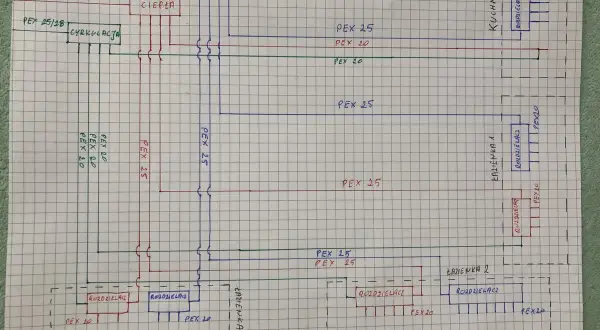 CIEPŁA
PEX 25/28
CYRKULACJA
PEX 25
PEX 20
PEX 20
KUCHN
ROZDZIELACZ
PEX 25
PEX 20
ROZDZIELACZ
ŁAZIENKA 1
PEX 20
PEX 20
PEX 20
PEX 25
PEX 25
PEX 25
PEX 20
ROZDZIELACZ
PEX 25
PEX 25
ŁAZIENKA 2
ROZDZIELACZ
ROZDZIELACZ
ROZDZIELACZ
ROZDZIELACZ
PEX 20
PEX 20
PEX 20
PEX 20